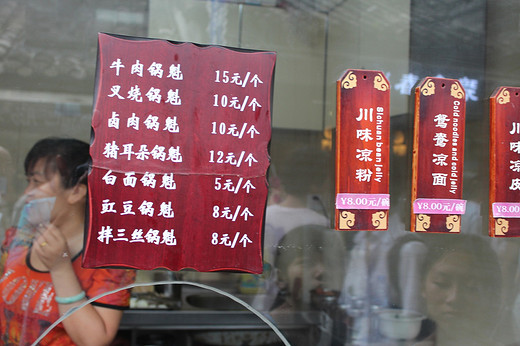 牛肉锅魁 15元/个
叉烧锅魁 10元/个
卤肉锅魁 10元/个
猪耳朵锅魁 12元/个
白面锅魁 5元/个
豇豆锅魁 8元/个
拌三丝锅魁 8元/个
川味凉粉
Sichuan bean jelly
¥8.00元/碗
鸳鸯凉面
Cold noodles and cold jelly
¥8.00元/碗